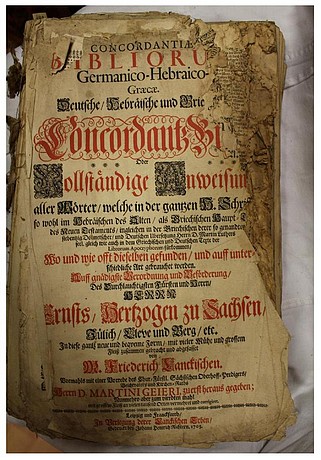 CONCORDANTIÆ
BIBLIORU
Germanico-Hebraico-
Græcæ.
Deutsche, Hebräische und Grie
Concordantz-Bi
Oder
Vollständige Anweisun
aller Wörter, welche in der gantzen H. Schr
so wohl im Hebräischen des Alten, als Griechischen Haupt-
des Neuen Testaments, ingleichen in der Griechischen derer so genandten
siebentzig Dolmetscher, und Deutschen Übersetzung Herrn D. Martin Luthers
seel. gleich wie auch in dem Griechischen und Deutschen Texte der
Librorum Apocryphorum fürkommen,
Wo und wie offt dieselben gefunden, und auff unter
schiedliche Art gebrauchet werden.
Auff gnädigste Verordnung und Beförderung,
Des Durchlauchtigsten Fürsten und Herrn,
HERRN
Ernsts, Hertzogen zu Sachsen,
Jülich, Cleve und Berg, etc.
In diese gantz neue und bequeme Form, mit vieler Mühe und grossem
Fleiß zusammen gebracht und abgefasset
von
M. Friederich Lanckischen.
Vormahls mit einer Vorrede des Chur-Fürstl. Sächsischen Oberhoff-Predigers,
Beichtvaters und Kirchen-Raths
Herrn D. MARTINI GEIERI, zuerst heraus gegeben;
Nunmehro aber zum
Leipzig und Franckfurth,
In Verlegung derer Lanckischen Erben,
Gedruckt bey Johann Heinrich Richtern,